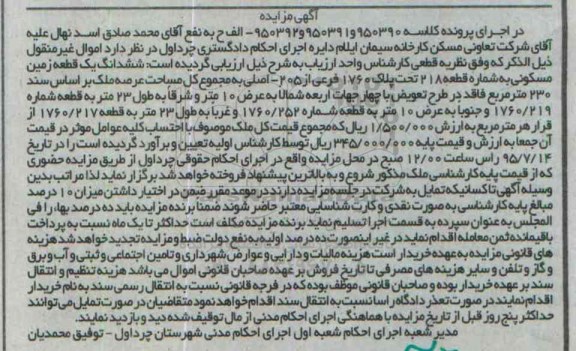 آگهی مزایده
در اجرای پرونده کلاسه ۹۵۰۳۹۰و۹۵۰۳۹۱و۹۵۰۳۹۲- الف ح به نفع آقای محمد صادق اسد نهال علیه
آقای شرکت تعاونی مسکن کارخانه سیمان ایلام دایره اجرای احکام دادگستری چرداول در نظر دارد اموال غیرمنقول
ذیل الذکر که وفق نظریه قطعی کارشناس واحد ارزیاب به شرح ذیل ارزیابی گردیده است: ششدانگ یک قطعه زمین
مسکونی به شماره قطعه ۲۱۸ تحت پلاک ۱۷۶۰ فرعی از ۲۰۵- اصلی به مجموع کل مساحت عرصه ملک بر اساس سند
۲۳۰ مترمربع فاقد در طرح تعویض با چهار جهات اربعه شمالا به عرض ۱۰ متر و شرقا به طول ۲۳ متر به قطعه شماره
۱۷۶۰/۲۱۹ و جنوبا به عرض ۱۰ متر به قطعه شماره ۱۷۶۰/۲۵۲ و غربا به طول ۲۳ متر به قطعه ۱۷۶۰/۲۱۷ از
قرار هر مترمربع به ارزش ۱/۵۰۰/۰۰۰ ریال که مجموع قیمت کل ملک موصوف با احتساب کلیه عوامل موثر در قیمت
آن جمعا به ارزش و قیمت پایه ۳۴۵/۰۰۰/۰۰۰ ریال توسط کارشناس اولیه تعیین و برآورد گردیده است را در تاریخ
۹۵/۷/۱۴ راس ساعت ۱۲/۰۰ صبح در محل مزایده واقع در اجرای احکام حقوقی چرداول از طریق مزایده حضوری
که از قیمت پایه کارشناسی ملک مذکور شروع و به بالاترین پیشنهاد فروخته خواهد شد برگزار نماید لذا مراتب بدین
وسیله آگهی تا کسانیکه تمایل به شرکت در جلسه مزایده دارند در موعد مقرر ضمن در اختیار داشتن میزان ۱۰ درصد
مبالغ پایه کارشناسی به صورت نقدی و کارت شناسایی معتبر حاضر شوند ضمنا برنده مزایده باید ده درصد بها را فی
المجلس به عنوان سپرده به قسمت اجرا تسلیم نماید برنده مزایده مکلف است حداکثر تا یک ماه نسبت به پرداخت
باقیمانده ثمن معامله اقدام نماید در غیر اینصورت ده درصد اولیه به نفع دولت ضبط و مزایده تجدید خواهد شد هزینه
های قانونی مزایده به عهده خریدار است هزینه مالیات و دارایی و عوارض شهرداری و تامین اجتماعی و ثبتی و آب و برق
و گاز و تلفن و سایر هزینه های مصرفی تا تاریخ فروش بر عهده صاحبان قانونی اموال می باشد هزینه تنظیم و انتقال
سند بر عهده خریدار بوده و صاحبان قانونی موظف بوده که در فرجه قانونی نسبت به انتقال رسمی سند به نام خریدار
اقدام نمایند در صورت تعذر دادگاه راسا نسبت به انتقال سند اقدام خواهد نمود متقاضیان در صورت تمایل می توانند
حداکثر پنج روز قبل از تاریخ مزایده با هماهنگی اجرای احکام مدنی از مال توقیف شده دید و بازدید نمایند.
مدیر شعبه اجرای احکام شعبه اول اجرای احکام مدنی شهرستان چرداول - توفیق محمدیان